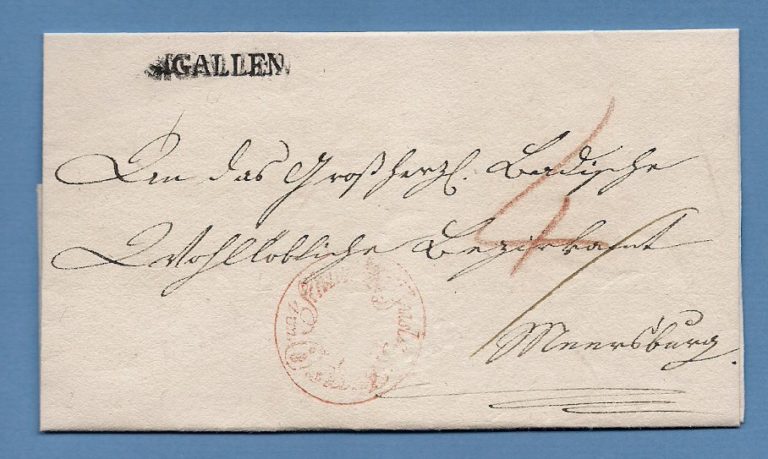 St GALLEN
An das Großherzl. Badische
Wohllöbliche Bezirksamt
Meersburg.
4